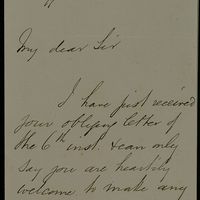 My dear Sir
I have just received
your obliging letter of
the 6th inst. & can only
say you are heartily
welcome to make any